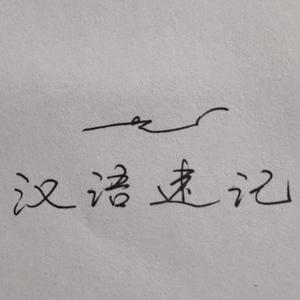 汉语速记